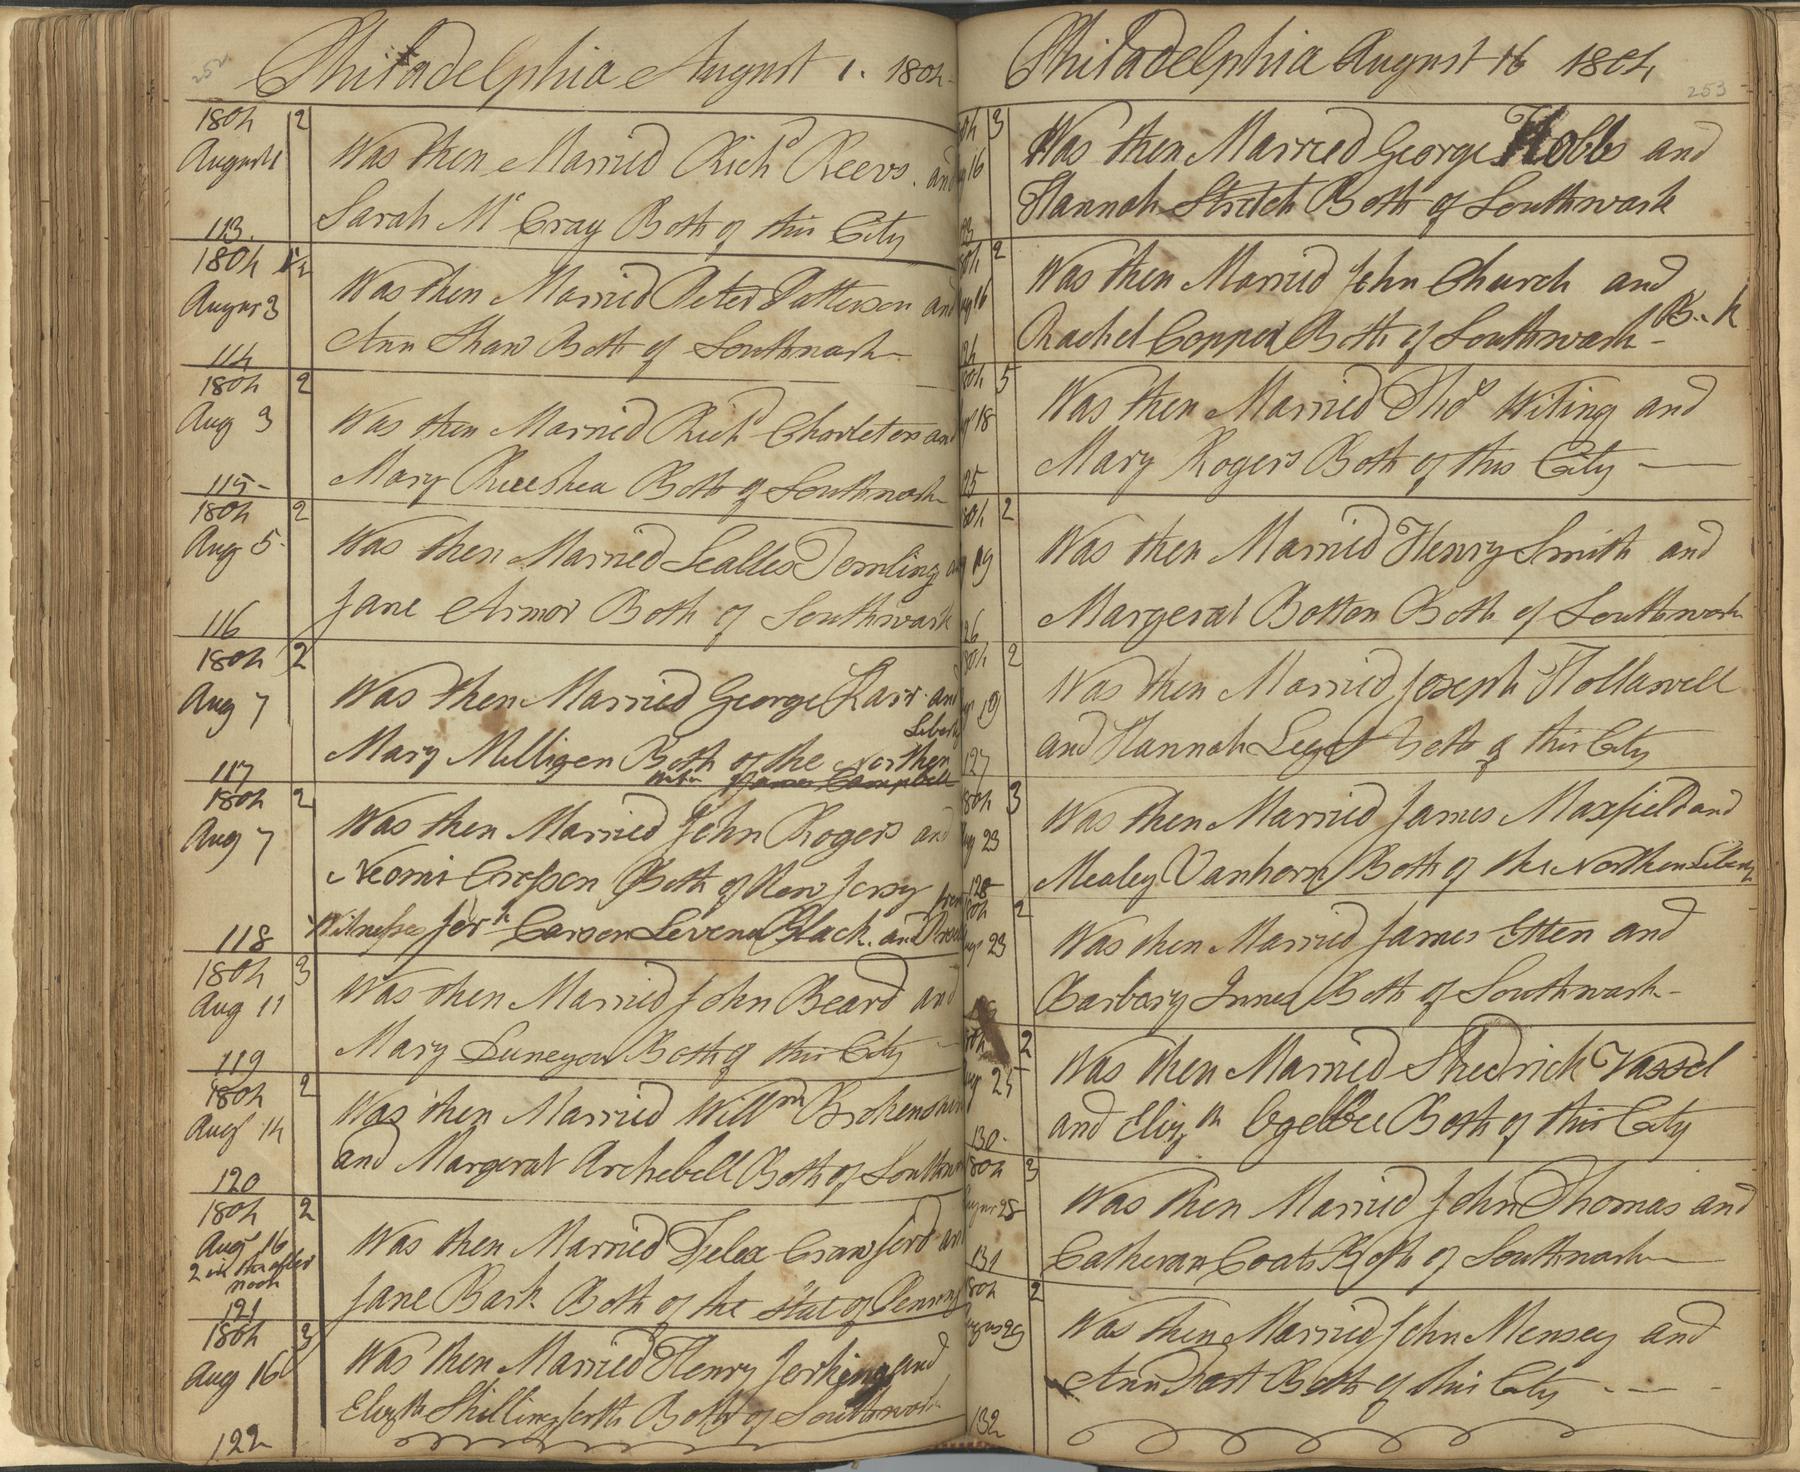 252
Philadelphia August 1. 1804
1804 2
August 1
Was then Married Richd Reevs. and
Sarah Mc Cray Both of this City
113.
1804
August 3
Was then Married Peter Patterson and
Ann Shaw Both of Southwark
114
1804 2
Aug 3
Was then Married Richd Charleton and
Mary Both of Southwark
115-
1804 2
Aug 5.
Was then Married Tomling
Jane Armor Both of Southwark
116
1804 2
Aug 7
Was then Married George and
Mary Milligen Both of the Northen
117
1804 2
Aug 7
Was then Married John Rogers and
Neomi Crossen Both of New Jersy
Witnesses Carson Levena Black. and
118
1804 3
Aug 11
Was then Married John Beard and
Mary Both of this City
119
1804 2
Aug 14
Was then Married Willm
and Margerat Archebell Both of
120
1804 2
Aug 16
2 in the after
noon
Was then Married Felex Crawford
Jane Both of the Stat of
121
1804 3
Aug 16
Was then Married Henry and
Elizth Shillingsforth Both of Southwark
122
Philadelphia August 16 1804
253
3
16
Was then Married George Hobbs and
Hannah Stretch Both of Southwark
2
Was then Married John Church and
Rachel Copper Both of Southwark -
5
18
Was then Married Thos Witing and
Mary Rogers Both of this City
25
2
19
Was then Married Henry Smith and
Margerat Botton Both of Southwark
26
2
19
Was then Married Joseph Hollawell
and Hannah Both of this City
127
3
23
Was then Married James Maxfield and
Mealey Vanhorn Both of the Northen
128
2
23
Was then Married James Otten and
Barbary Innes Both of Southwark-
2
25
Was then Married Shedrick Vassel
and Elizth Both of this City
130-
1804 3
28
Was then Married John Thomas and
Catheran Coats Both of Southwark
131
2
29
Was then Married John Mensey and
Ann Both of this City
132